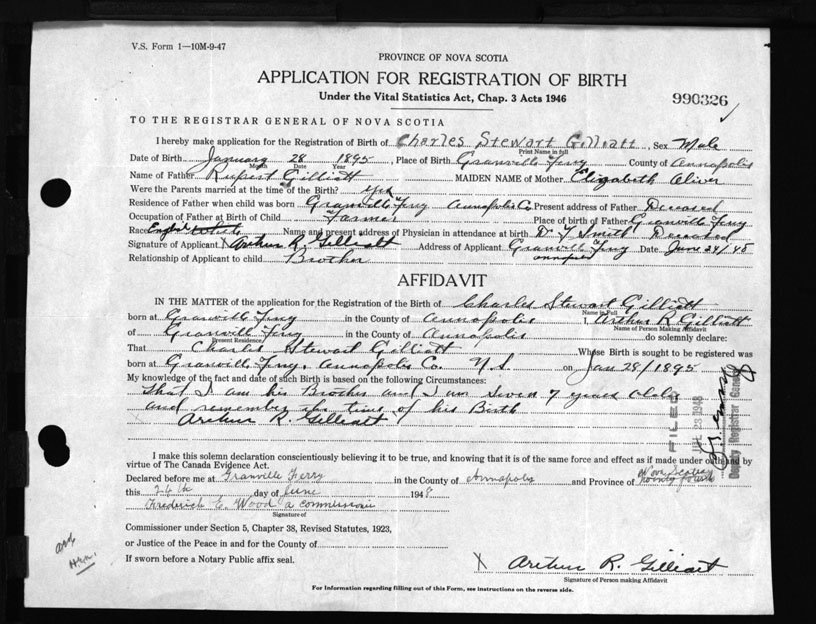 V.S. Form 1—10M-9-47
PROVINCE OF NOVA SCOTIA
APPLICATION FOR REGISTRATION OF BIRTH
Under the Vital Statistics Act, Chap. 3 Acts 1946
990326
TO THE REGISTRAR GENERAL OF NOVA SCOTIA
I hereby make application for the Registration of Birth of Charles Stewart Gilliatt, Sex Male
Print Name in full
Date of Birth January 28 1895, Place of Birth Granville Ferry County of Annapolis
Month Date Year
Name of Father Rupert Gilliatt MAIDEN NAME of Mother Elizabeth Oliver
Were the Parents married at the time of the Birth? Yes
Residence of Father when child was born Granville Ferry Annapolis Co. Present address of Father Deceased
Occupation of Father at Birth of Child Farmer Place of birth of Father Granville Ferry
Race English White Name and present address of Physician in attendance at birth Dr Smith Deceased
Signature of Applicant X Arthur R. Gilliatt Address of Applicant Granville Ferry Date June 24/48
Annapolis
Relationship of Applicant to child Brother
AFFIDAVIT
IN THE MATTER of the application for the Registration of the Birth of Charles Stewart Gilliatt
Name in Full
born at Granville Ferry in the County of Annapolis I, Arthur R. Gilliatt
Name of Person Making Affidavit
of Granville Ferry in the County of Annapolis do solemnly declare:
Present Residence
That Charles Stewart Gilliatt Whose Birth is sought to be registered was
born at Granville Ferry, Annapolis Co. N.S. on Jan 28/1895
My knowledge of the fact and date of such Birth is based on the following Circumstances:
That I am his Brother and I am 7 years older
and remember the time of his Birth
Arthur R. Gilliatt
FILED
23 1948
Deputy Registrar General
I make this solemn declaration conscientiously believing it to be true, and knowing that it is of the same force and effect as if made under oath and by
virtue of The Canada Evidence Act.
Declared before me at Granville Ferry in the County of Annapolis and Province of Nova Scotia
this 26th day of June 1948
Frederick E. Wood a commissioner
Signature of
Commissioner under Section 5, Chapter 38, Revised Statutes, 1923,
or Justice of the Peace in and for the County of
If sworn before a Notary Public affix seal.
X Arthur R. Gilliatt
Signature of Person making Affidavit
For Information regarding filling out of this Form, see instructions on the reverse side.